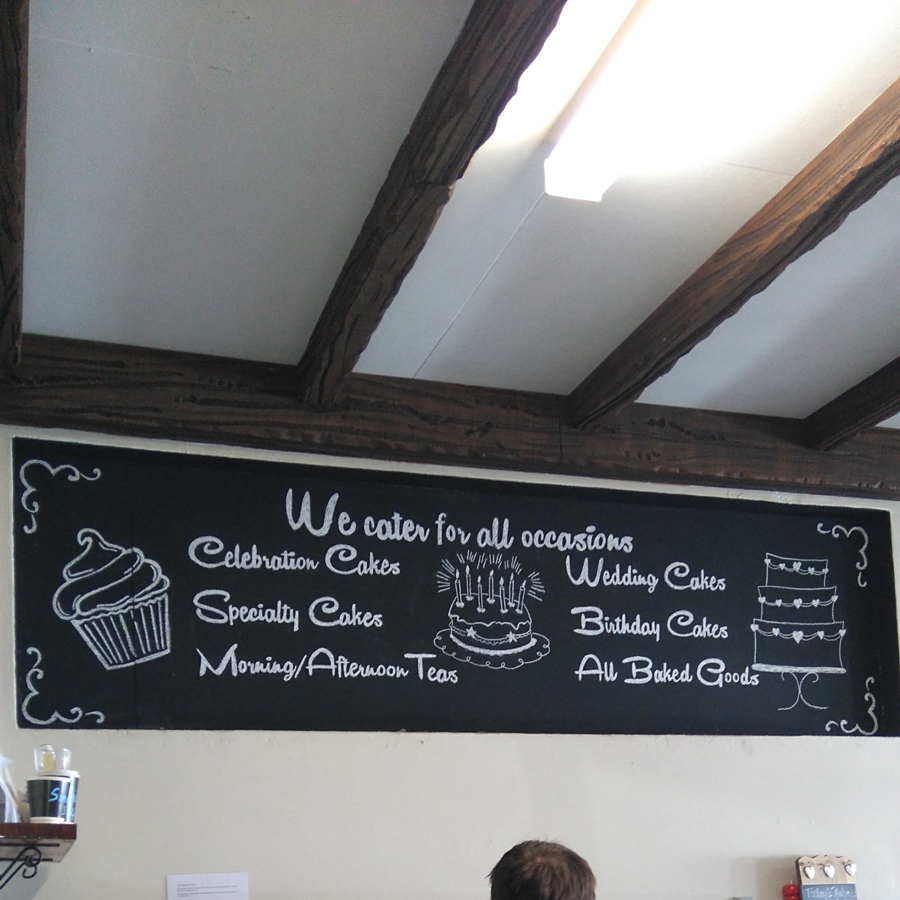 We cater for all occasions
Celebration Cakes
Specialty Cakes
Morning/Afternoon Teas
Wedding Cakes
Birthday Cakes
All Baked Goods